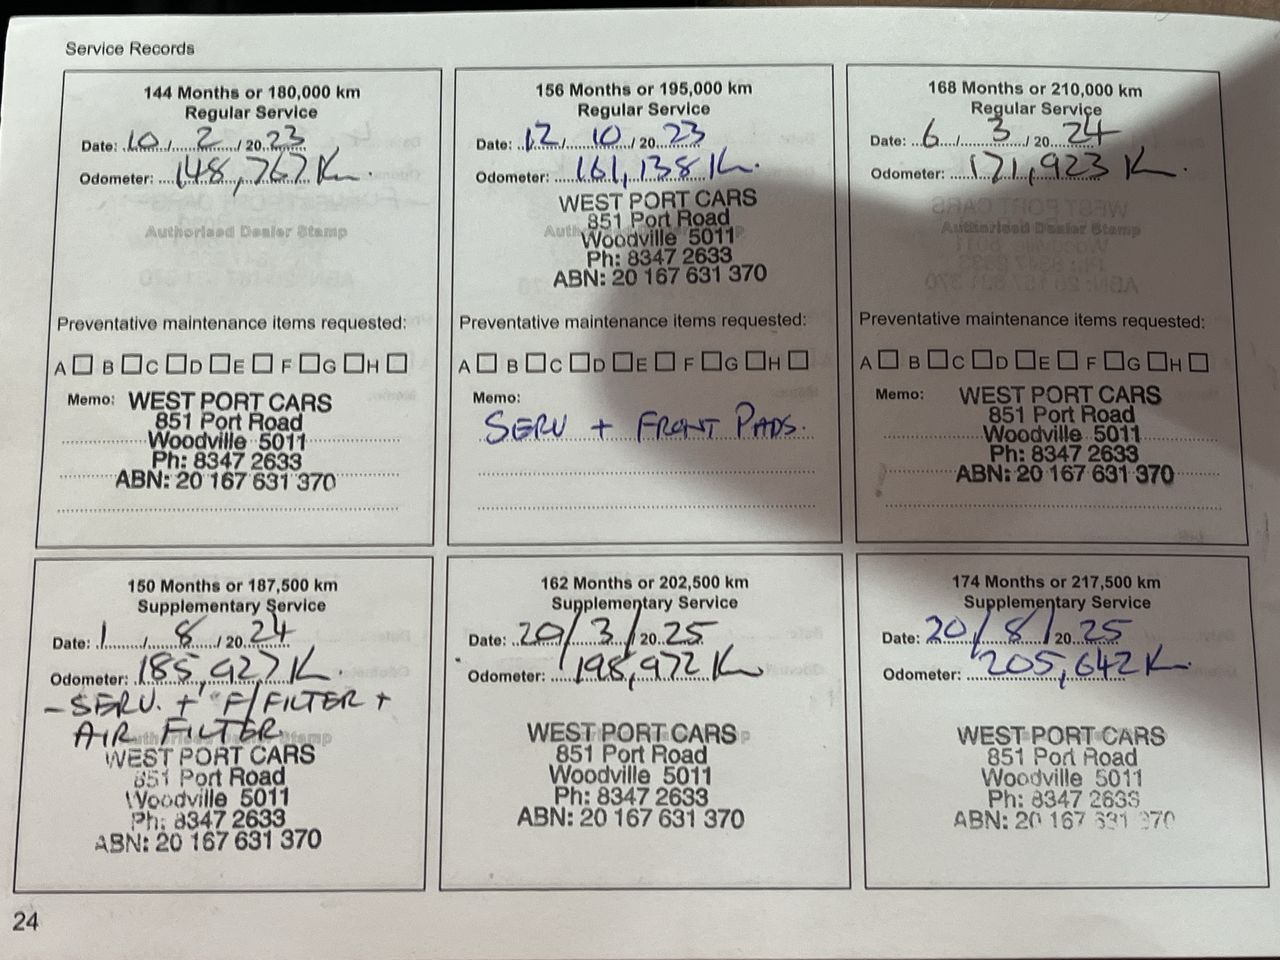 Service Records
144 Months or 180,000 km
Regular Service
Date: 10/2/2023
Odometer: 148,767 K
Authorised Dealer Stamp
Preventative maintenance items requested:
A B C D E F G H
Memo: WEST PORT CARS
851 Port Road
Woodville 5011
Ph: 8347 2633
ABN: 20 167 631 370
156 Months or 195,000 km
Regular Service
Date: 12/10/2023
Odometer: 161,138 K
WEST PORT CARS
851 Port Road
Woodville 5011
Ph: 8347 2633
ABN: 20 167 631 370
Preventative maintenance items requested:
A B C D E F G H
Memo:
SERV + FRONT PADS.
168 Months or 210,000 km
Regular Service
Date: 6/3/2024
Odometer: 171,923 K
Authorised Dealer Stamp
Preventative maintenance items requested:
A B C D E F G H
Memo: WEST PORT CARS
851 Port Road
Woodville 5011
Ph: 8347 2633
ABN: 20 167 631 370
150 Months or 187,500 km
Supplementary Service
Date: 1/8/2024
Odometer: 185,927 K
- SERV. + F/FILTER +
AIR FILTER
WEST PORT CARS
851 Port Road
Woodville 5011
Ph: 8347 2633
ABN: 20 167 631 370
162 Months or 202,500 km
Supplementary Service
Date: 20/3/2025
Odometer: 198,972 K
WEST PORT CARS
851 Port Road
Woodville 5011
Ph: 8347 2633
ABN: 20 167 631 370
174 Months or 217,500 km
Supplementary Service
Date: 20/8/2025
Odometer: 205,642 K
WEST PORT CARS
851 Port Road
Woodville 5011
Ph: 8347 2633
ABN: 20 167 631 370
24